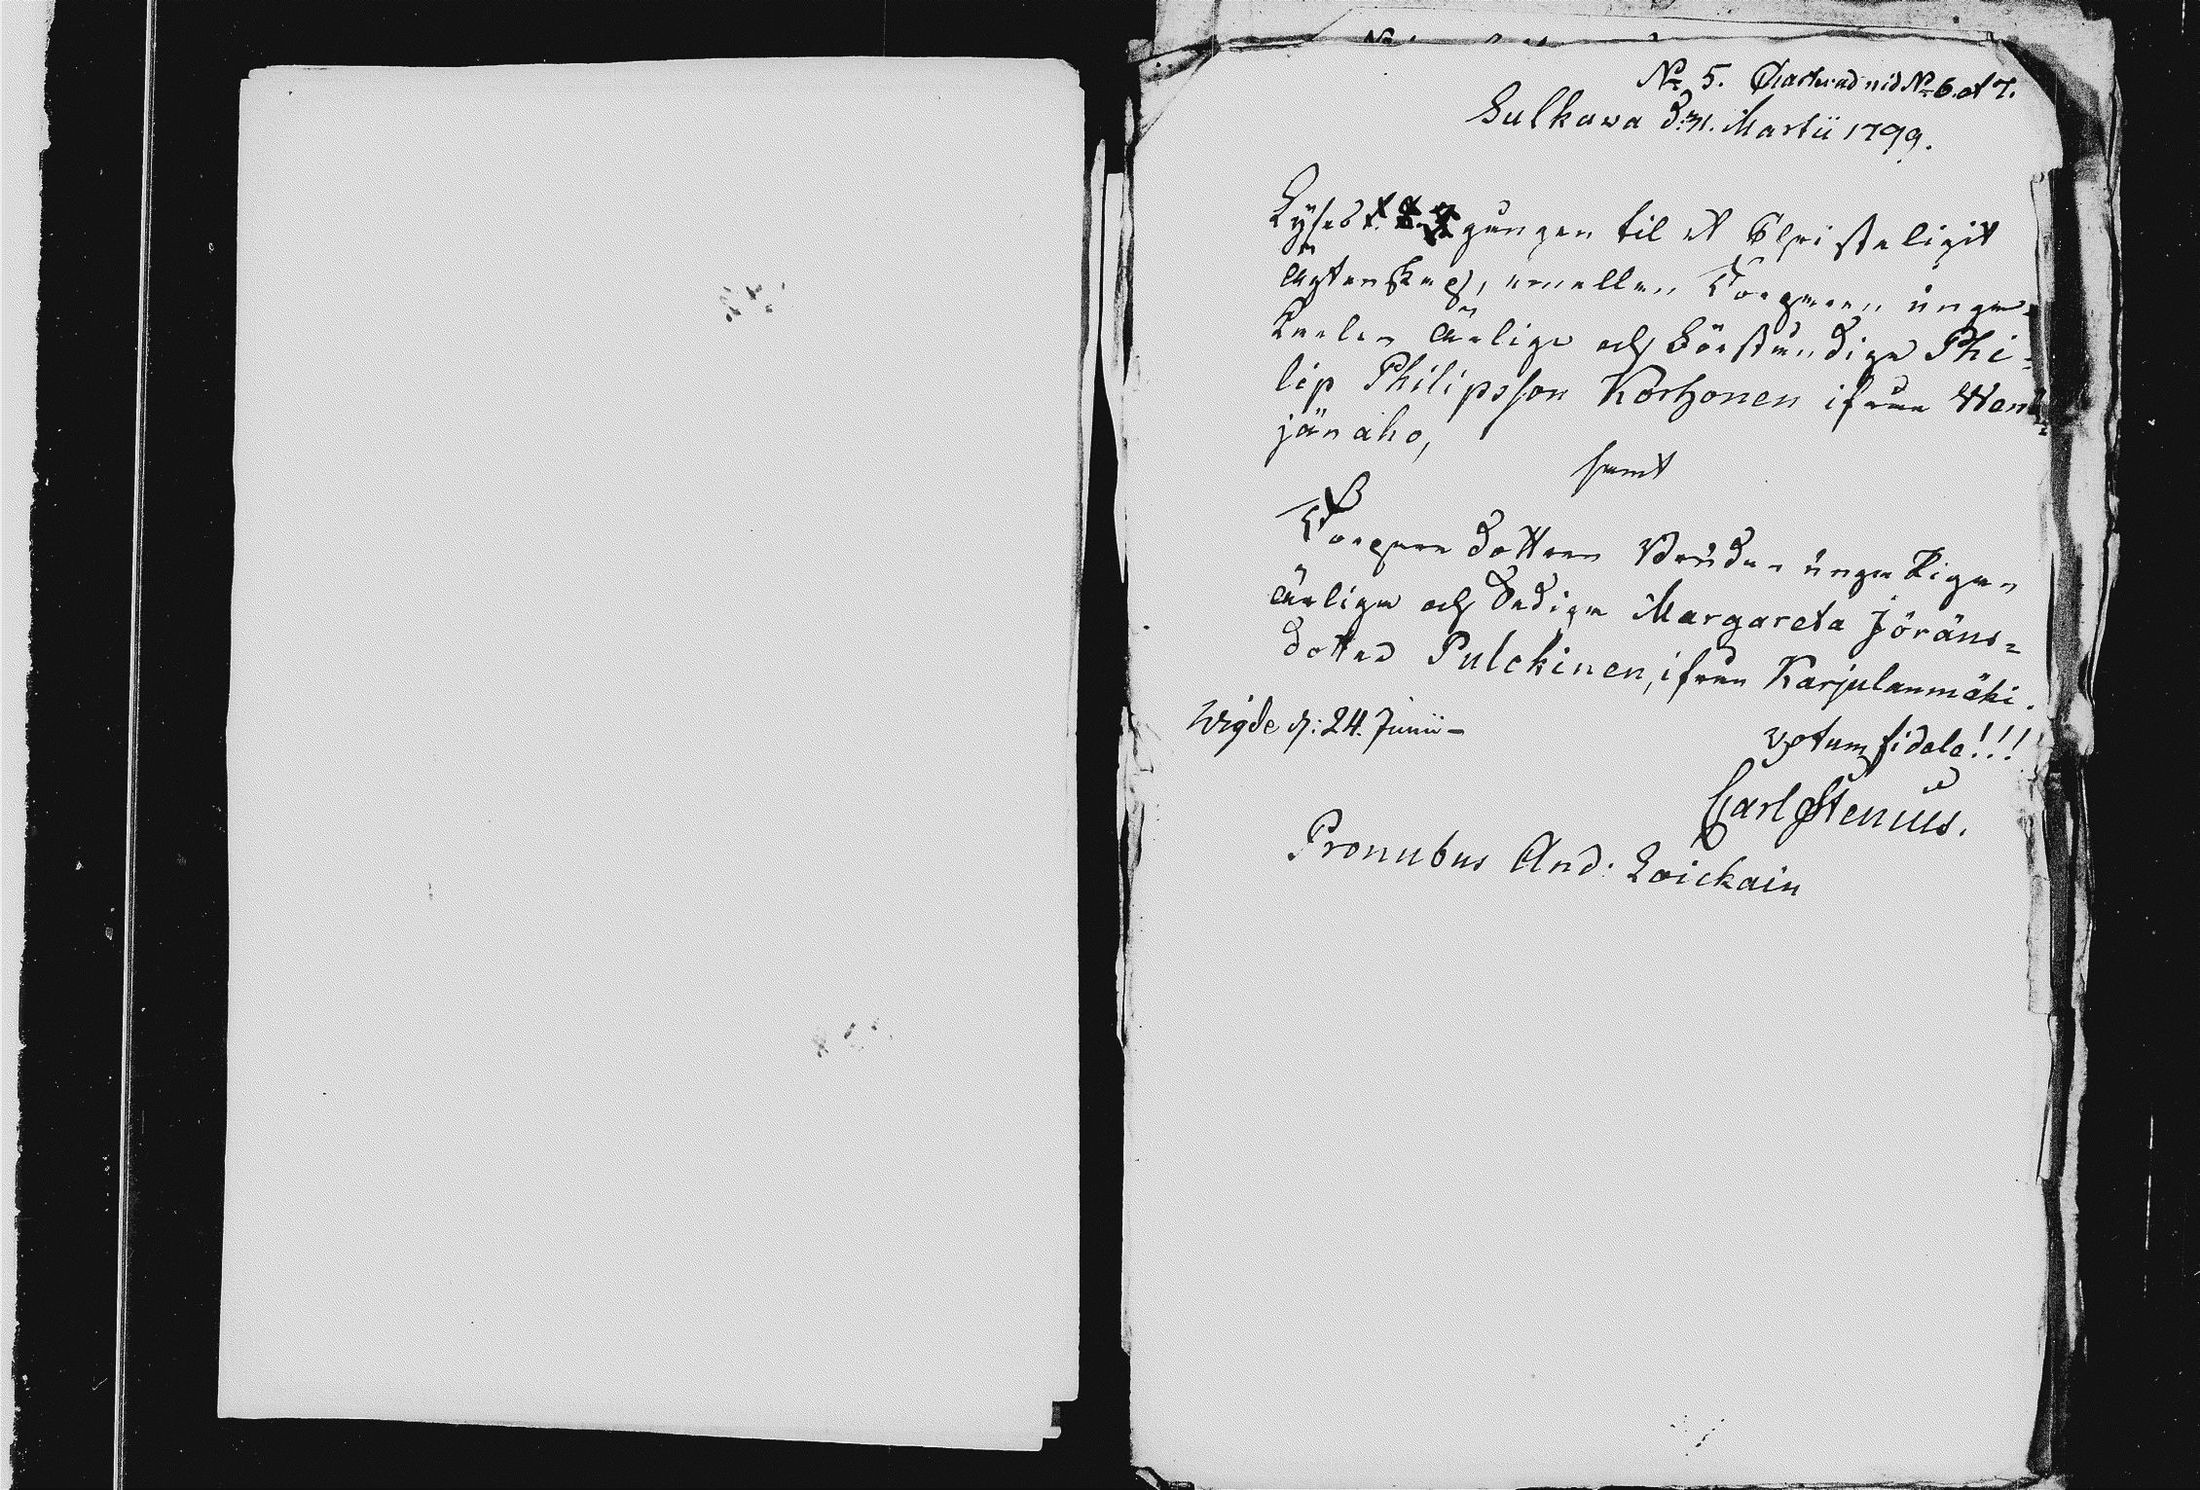 No 5. Charterad vid No 6. et 7.
Sulkawa d: 31. Martii 1799.
Lyses 1. 2. 3. gången til et Christeligit
ägtenskap, emellan Torparen unge
Karlen Ärlige och Förståndige Phi=
lip Philipsson Korhonen ifrån Wen=
jän aho,
samt
Torpare dottren Bruden unga Pigan
Ärliga och Sediga Margareta Jöräns=
dotter Pulckinen, ifrån Karjulanmäki.
Wigde d: 24. Junii –
votum fidele!!!
Carl Stenius.
Pronubus And: Loickain